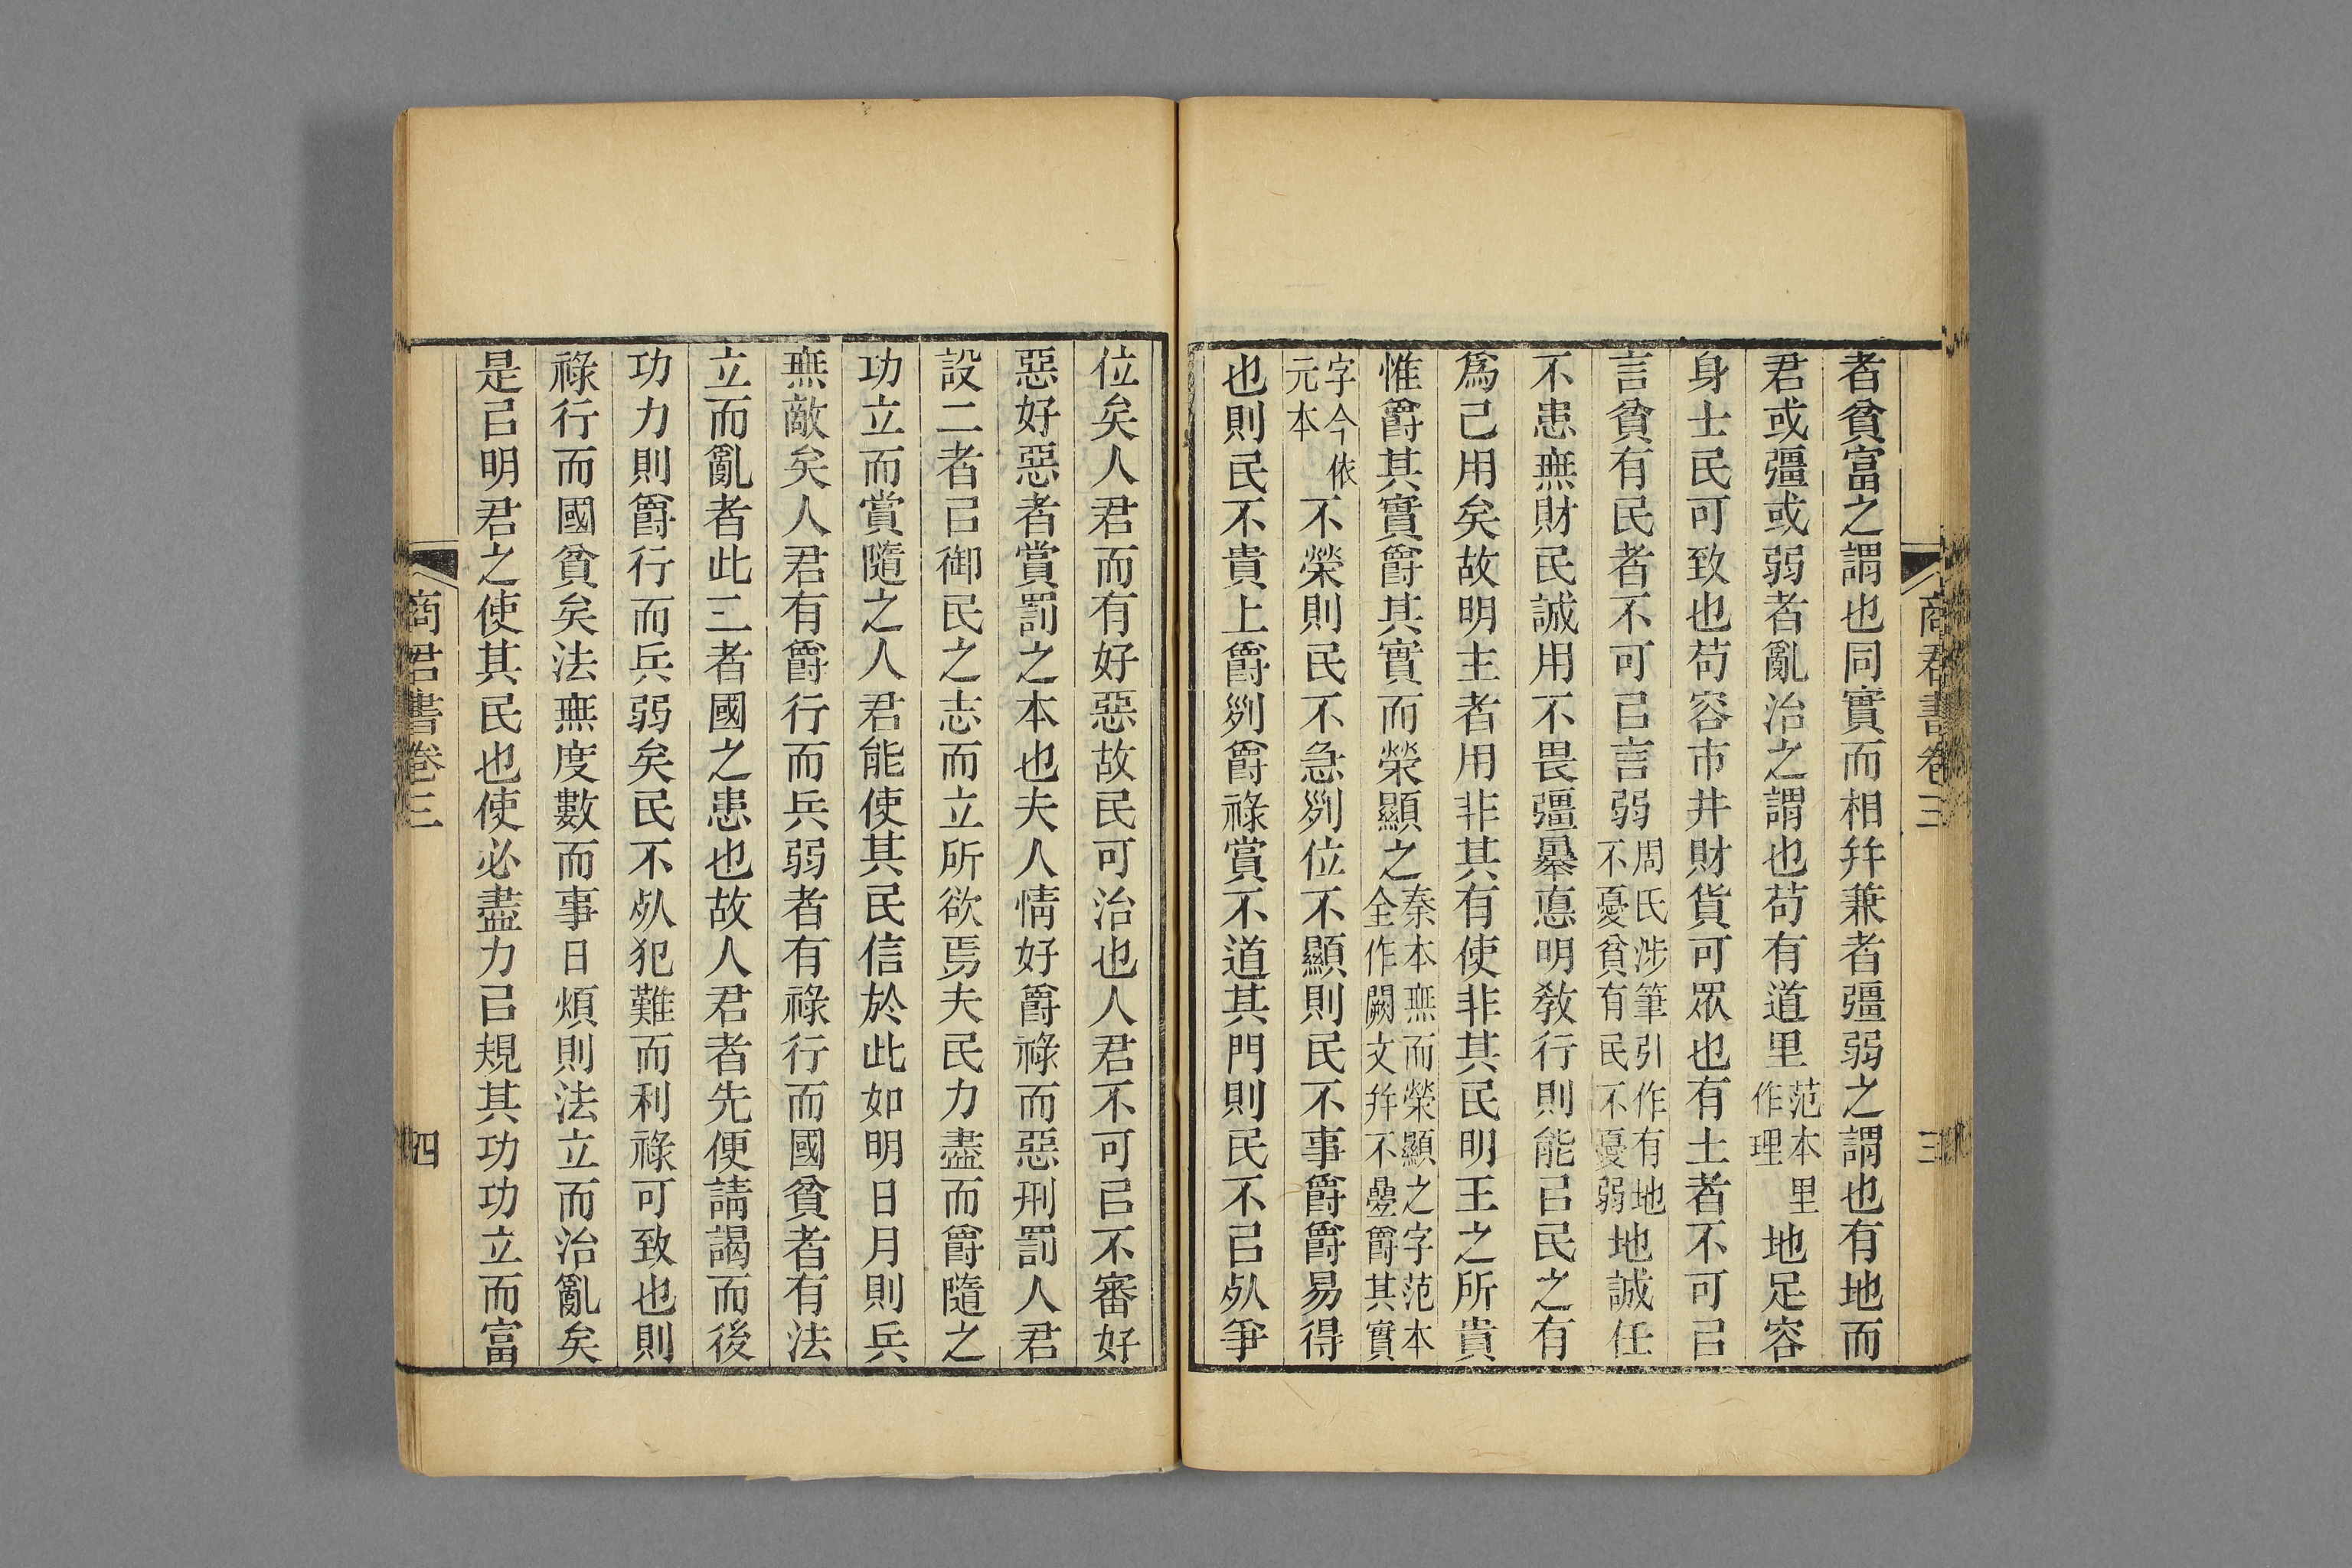 商君書卷三
三
者貧富之謂也同實而相幷兼者彊弱之謂也有地而
君或彊或弱者亂治之謂也苟有道里范本里作理地足容
身士民可致也苟容市井財貨可眾也有土者不可㠯
言貧有民者不可㠯言弱周氏涉筆引作有地不憂貧有民不憂弱地誠任
不患無財民誠用不畏彊㬥悳明敎行則能㠯民之有
爲己用矣故明主者用非其有使非其民明王之所貴
惟爵其實爵其實而榮顯之秦本無而榮顯之字范本全作闕文幷不曡爵其實
字今依元本不榮則民不急列位不顯則民不事爵爵易得
也則民不貴上爵列爵祿賞不道其門則民不㠯死爭
位矣人君而有好惡故民可治也人君不可㠯不審好
惡好惡者賞罰之本也夫人情好爵祿而惡刑罰人君
設二者㠯御民之志而立所欲焉夫民力盡而爵隨之
功立而賞隨之人君能使其民信於此如明日月則兵
無敵矣人君有爵行而兵弱者有祿行而國貧者有法
立而亂者此三者國之患也故人君者先便請謁而後
功力則爵行而兵弱矣民不死犯難而利祿可致也則
祿行而國貧矣法無度數而事日煩則法立而治亂矣
是㠯明君之使其民也使必盡力㠯規其功功立而富
商君書卷三
四